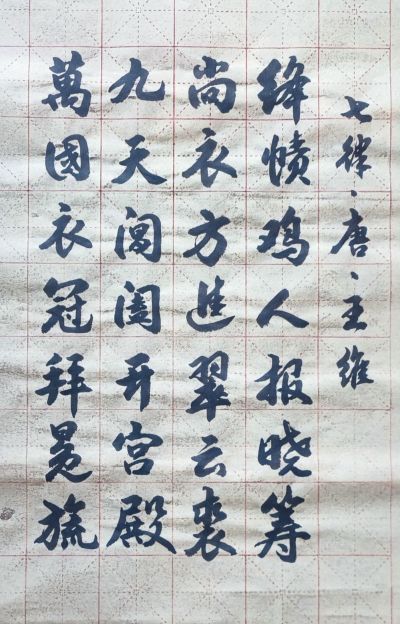 七律·唐·王维
绛帻鸡人报晓筹
尚衣方进翠云裘
九天阊阖开宫殿
萬國衣冠拜冕旒